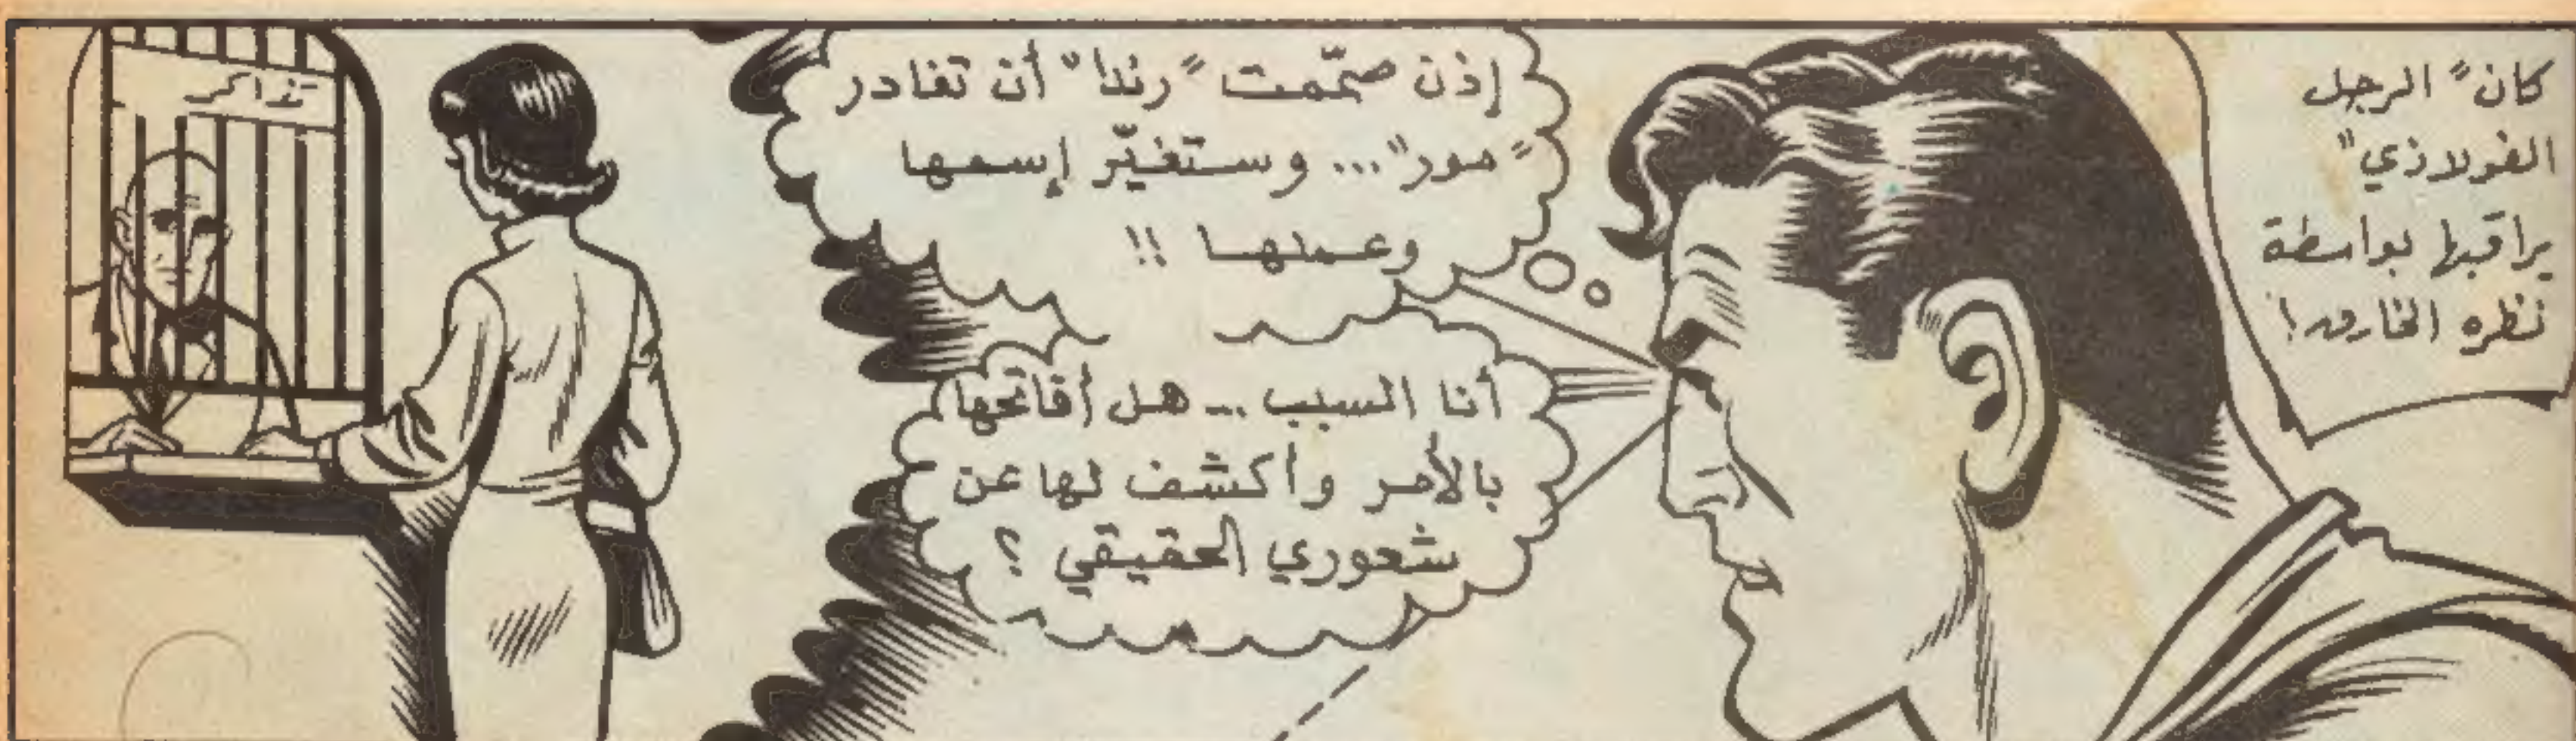 كان "الرجل
الفولاذي"
يراقبها بواسطة
نظره الخارق!
إذن صمّمت "رندا" أن تغادر
"مور"... وستغيّر إسمها
وعملها !!
أنا السبب... هل أفاتحها
بالأمر وأكشف لها عن
شعوري الحقيقي ؟
تذاكر